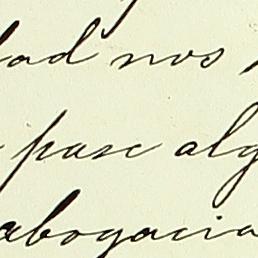 dad nos
pase alg
abogacia